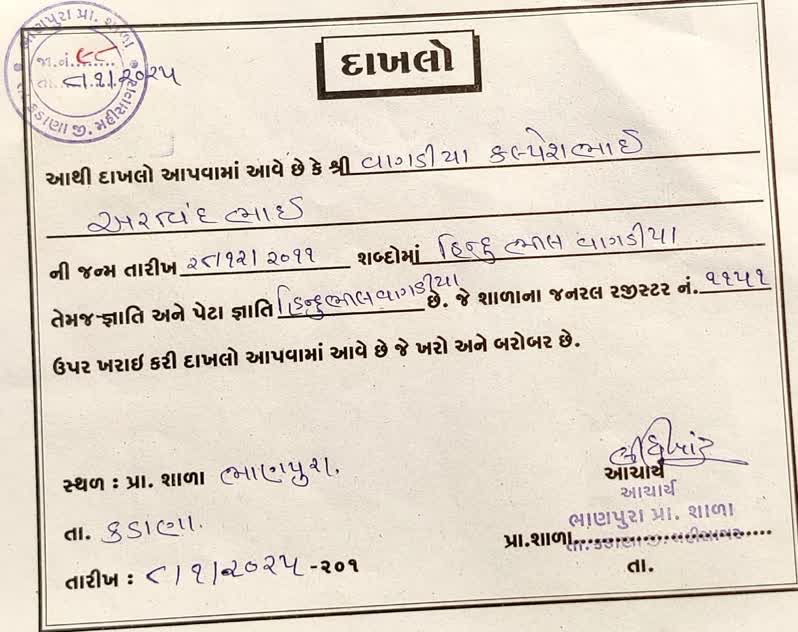 ભાણપુરા પ્રા. શાળા
જા.નં. ૯૮
તા. ૮/૧/૨૦૨૫
તા. કડાણા જી. મહીસાગર
દાખલો
આથી દાખલો આપવામાં આવે છે કે શ્રી વાગડીયા કલ્પેશભાઈ
અરવિંદભાઈ
ની જન્મ તારીખ ૨૮/૧૨/૨૦૧૧ શબ્દોમાં હિન્દુ ભીલ વાગડીયા
તેમજ-જ્ઞાતિ અને પેટા જ્ઞાતિ હિન્દુ ભીલ વાગડીયા છે. જે શાળાના જનરલ રજીસ્ટર નં. ૧૧૫૧
ઉપર ખરાઇ કરી દાખલો આપવામાં આવે છે જે ખરો અને બરોબર છે.
સ્થળ : પ્રા. શાળા ભાણપુરા.
આચાર્ય
આચાર્ય
ભાણપુરા પ્રા. શાળા
તા. કડાણા.
પ્રા.શાળા
તા.કડાણા જી. મહીસાગર
તારીખ : ૮/૧/૨૦૨૫ -૨૦૧
તા.